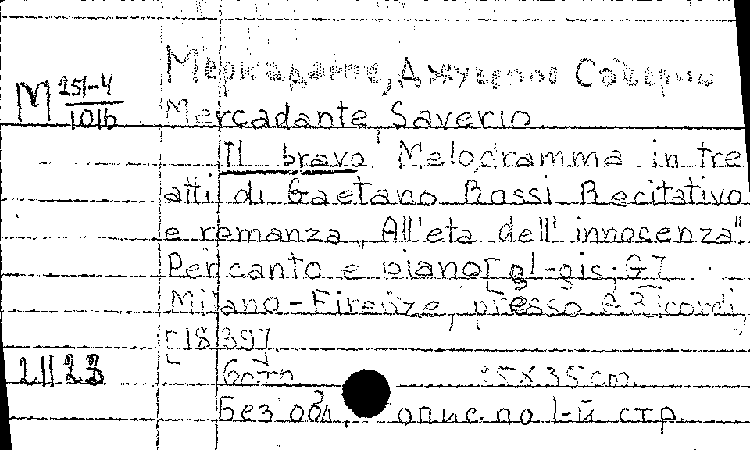 Меркаданте, Джузеппе Саверио
M 251-4/1016
Mercadante, Saverio
Il bravo Melodramma in tre
atti di Gaetano Rossi Recitativo
e romanza „All'eta dell' innocenza".
Per canto e piano
Milano-Firenze, presso G Ricordi,
[1839]
21123 25x35cm.
Без обл, опис. по 1-й стр.